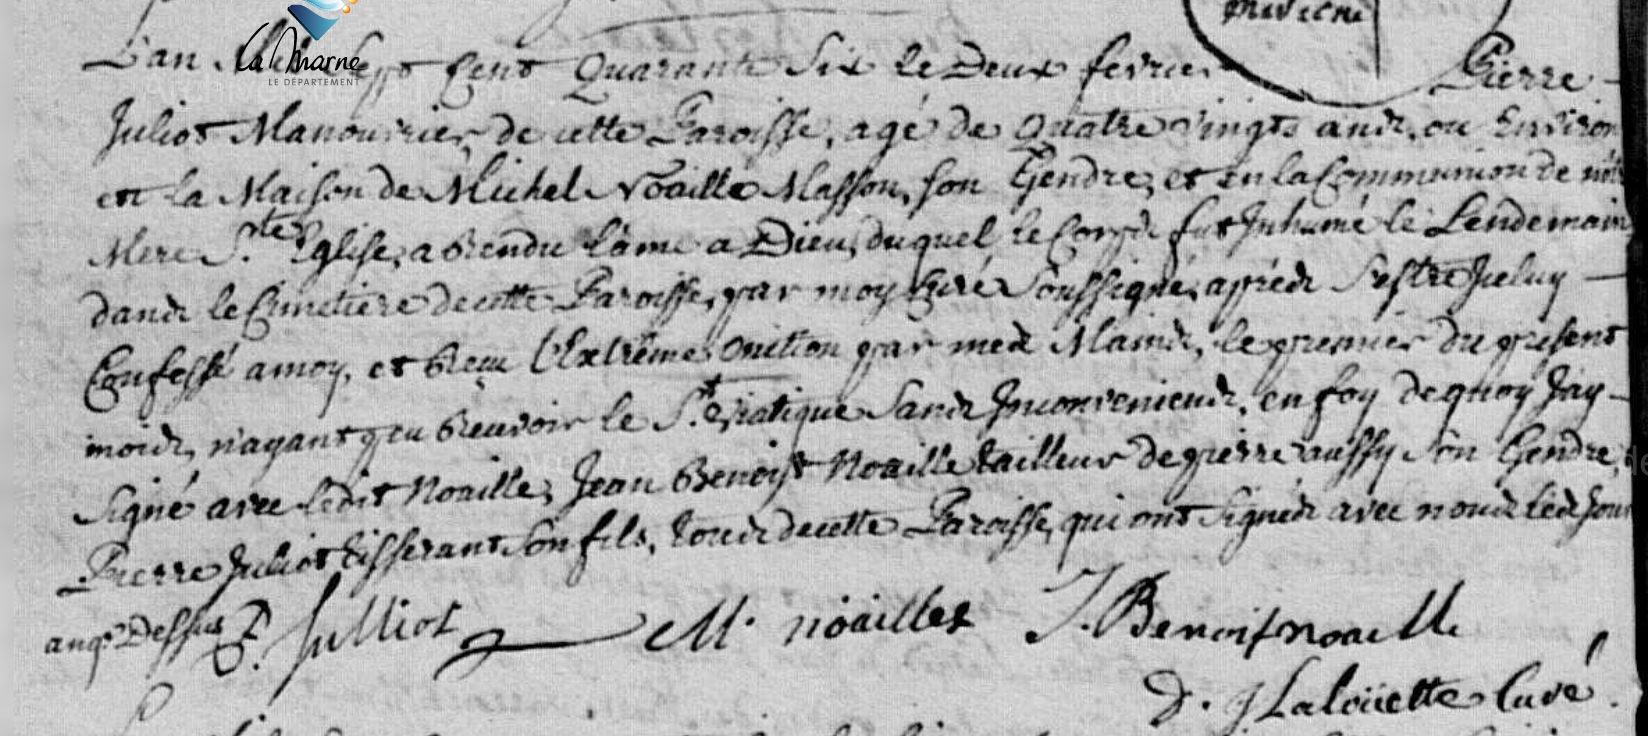 La Marne
LE DÉPARTEMENT
L'an Mil Sept Cens Quarante Six le Deux fevrier Pierre
Juliot Manouvrier, de cette Paroisse, agé de Quatre vingts ans, ou Environ
en la Maison de Michel Noaille Masson, son Gendre, et en la Communion de nôtre
Mere Ste Eglise, a Rendu l'ame a Dieu, duquel le Corps fut Inhumé le Lendemain
dans le Cimetiere de cette Paroisse, par moy Curé Soussigné, aprés S'estre Iceluy
Confessé a moy, et Reçu l'Extrême Onction par mes Mains, le premier du present
mois, n'ayant peu Recevoir le St Viatique Sans Inconveniens, en foy de quoy J'ay
Signé avec ledit Noaille, Jean Benoist Noaille tailleur de pierre aussy son Gendre,
Pierre Juliot tisserant Son fils, tous de cette Paroisse, qui ont Signés avec nous Lesd Jour
an que Dessus P. Julliot M. noailles J. Benoist noaille
D. J Laloüette Curé